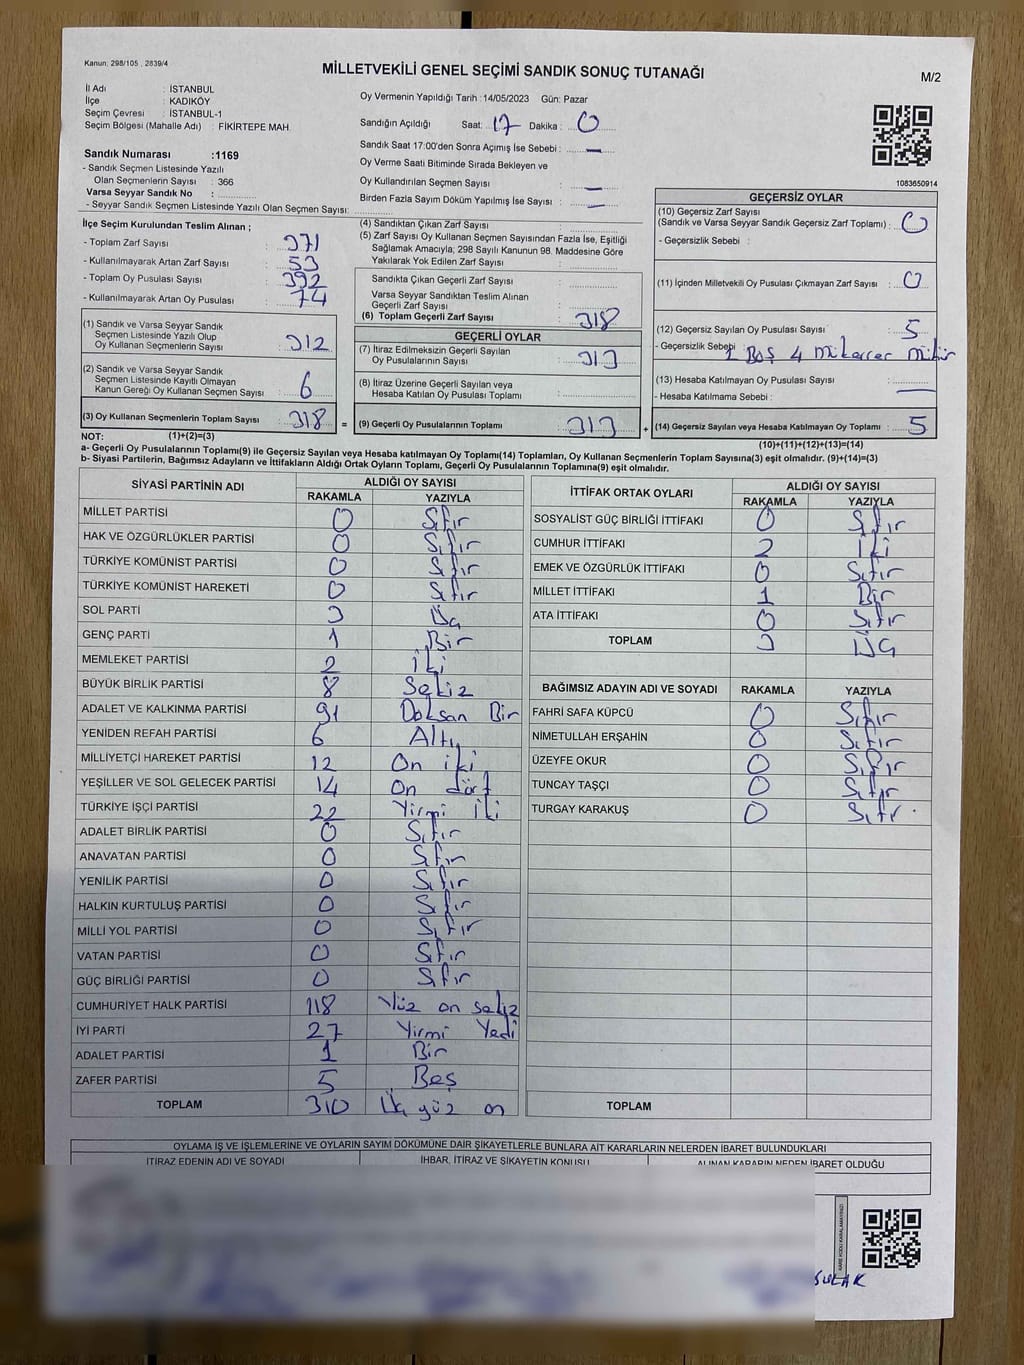 Kanun: 298/105 , 2839/4
MİLLETVEKİLİ GENEL SEÇİMİ SANDIK SONUÇ TUTANAĞI
M/2
İl Adı : İSTANBUL
İlçe : KADIKÖY
Seçim Çevresi : İSTANBUL-1
Seçim Bölgesi (Mahalle Adı) : FİKİRTEPE MAH.
Oy Vermenin Yapıldığı Tarih :14/05/2023 Gün: Pazar
Sandığın Açıldığı Saat: 17 Dakika : 0
Sandık Saat 17:00'den Sonra Açımış İse Sebebi : —
Oy Verme Saati Bitiminde Sırada Bekleyen ve
Oy Kullandırılan Seçmen Sayısı : —
Birden Fazla Sayım Döküm Yapılmış İse Sayısı : —
1083650914
Sandık Numarası :1169
- Sandık Seçmen Listesinde Yazılı
Olan Seçmenlerin Sayısı : 366
Varsa Seyyar Sandık No :
- Seyyar Sandık Seçmen Listesinde Yazılı Olan Seçmen Sayısı:
İlçe Seçim Kurulundan Teslim Alınan ;
- Toplam Zarf Sayısı : 371
- Kullanılmayarak Artan Zarf Sayısı : 53
- Toplam Oy Pusulası Sayısı : 392
- Kullanılmayarak Artan Oy Pusulası : 74
(1) Sandık ve Varsa Seyyar Sandık
Seçmen Listesinde Yazılı Olup
Oy Kullanan Seçmenlerin Sayısı : 312
(2) Sandık ve Varsa Seyyar Sandık
Seçmen Listesinde Kayıtlı Olmayan
Kanun Gereği Oy Kullanan Seçmen Sayısı : 6
(3) Oy Kullanan Seçmenlerin Toplam Sayısı : 318 =
(4) Sandıktan Çıkan Zarf Sayısı :
(5) Zarf Sayısı Oy Kullanan Seçmen Sayısından Fazla İse, Eşitliği
Sağlamak Amacıyla, 298 Sayılı Kanunun 98. Maddesine Göre
Yakılarak Yok Edilen Zarf Sayısı :
Sandıkta Çıkan Geçerli Zarf Sayısı :
Varsa Seyyar Sandıktan Teslim Alınan
Geçerli Zarf Sayısı :
(6) Toplam Geçerli Zarf Sayısı : 318
GEÇERLİ OYLAR
(7) İtiraz Edilmeksizin Geçerli Sayılan
Oy Pusulasının Sayısı : 313
(8) İtiraz Üzerine Geçerli Sayılan veya
Hesaba Katılan Oy Pusulası Toplamı :
(9) Geçerli Oy Pusulalarının Toplamı : 313 +
GEÇERSİZ OYLAR
(10) Geçersiz Zarf Sayısı
(Sandık ve Varsa Seyyar Sandık Geçersiz Zarf Toplamı) : 0
- Geçersizlik Sebebi :
(11) İçinden Milletvekili Oy Pusulası Çıkmayan Zarf Sayısı : 0
(12) Geçersiz Sayılan Oy Pusulası Sayısı : 5
- Geçersizlik Sebebi : 1 Boş 4 mükerrer mühür
(13) Hesaba Katılmayan Oy Pusulası Sayısı :
- Hesaba Katılmama Sebebi : —
(14) Geçersiz Sayılan veya Hesaba Katılmayan Oy Toplamı : 5
NOT: (1)+(2)=(3)
(10)+(11)+(12)+(13)=(14)
a- Geçerli Oy Pusulalarının Toplamı(9) ile Geçersiz Sayılan veya Hesaba katılmayan Oy Toplamı(14) Toplamları, Oy Kullanan Seçmenlerin Toplam Sayısına(3) eşit olmalıdır. (9)+(14)=(3)
b- Siyasi Partilerin, Bağımsız Adayların ve İttifakların Aldığı Ortak Oyların Toplamı, Geçerli Oy Pusulalarının Toplamına(9) eşit olmalıdır.
SİYASİ PARTİNİN ADI ALDIĞI OY SAYISI
RAKAMLA YAZIYLA
MİLLET PARTİSİ 0 Sıfır
HAK VE ÖZGÜRLÜKLER PARTİSİ 0 Sıfır
TÜRKİYE KOMÜNİST PARTİSİ 0 Sıfır
TÜRKİYE KOMÜNİST HAREKETİ 0 Sıfır
SOL PARTİ 3 Üç
GENÇ PARTİ 1 Bir
MEMLEKET PARTİSİ 2 İki
BÜYÜK BİRLİK PARTİSİ 8 Sekiz
ADALET VE KALKINMA PARTİSİ 91 Doksan Bir
YENİDEN REFAH PARTİSİ 6 Altı
MİLLİYETÇİ HAREKET PARTİSİ 12 On iki
YEŞİLLER VE SOL GELECEK PARTİSİ 14 On dört
TÜRKİYE İŞÇİ PARTİSİ 22 Yirmi İki
ADALET BİRLİK PARTİSİ 0 Sıfır
ANAVATAN PARTİSİ 0 Sıfır
YENİLİK PARTİSİ 0 Sıfır
HALKIN KURTULUŞ PARTİSİ 0 Sıfır
MİLLİ YOL PARTİSİ 0 Sıfır
VATAN PARTİSİ 0 Sıfır
GÜÇ BİRLİĞİ PARTİSİ 0 Sıfır
CUMHURİYET HALK PARTİSİ 118 Yüz on sekiz
İYİ PARTİ 27 Yirmi Yedi
ADALET PARTİSİ 1 Bir
ZAFER PARTİSİ 5 Beş
TOPLAM 310 Üç yüz on
İTTİFAK ORTAK OYLARI ALDIĞI OY SAYISI
RAKAMLA YAZIYLA
SOSYALİST GÜÇ BİRLİĞİ İTTİFAKI 0 Sıfır
CUMHUR İTTİFAKI 2 İki
EMEK VE ÖZGÜRLÜK İTTİFAKI 0 Sıfır
MİLLET İTTİFAKI 1 Bir
ATA İTTİFAKI 0 Sıfır
TOPLAM 3 Üç
BAĞIMSIZ ADAYIN ADI VE SOYADI RAKAMLA YAZIYLA
FAHRİ SAFA KÜPCÜ 0 Sıfır
NİMETULLAH ERŞAHİN 0 Sıfır
ÜZEYFE OKUR 0 Sıfır
TUNCAY TAŞÇI 0 Sıfır
TURGAY KARAKUŞ 0 Sıfır
TOPLAM
OYLAMA İŞ VE İŞLEMLERİNE VE OYLARIN SAYIM DÖKÜMÜNE DAİR ŞİKAYETLERLE BUNLARA AİT KARARLARIN NELERDEN İBARET BULUNDUKLARI
İTİRAZ EDENİN ADI VE SOYADI İHBAR, İTİRAZ VE ŞİKAYETİN KONUSU ALINAN KARARIN NEDEN İBARET OLDUĞU
KARE KODU KARALAMAYINIZ!